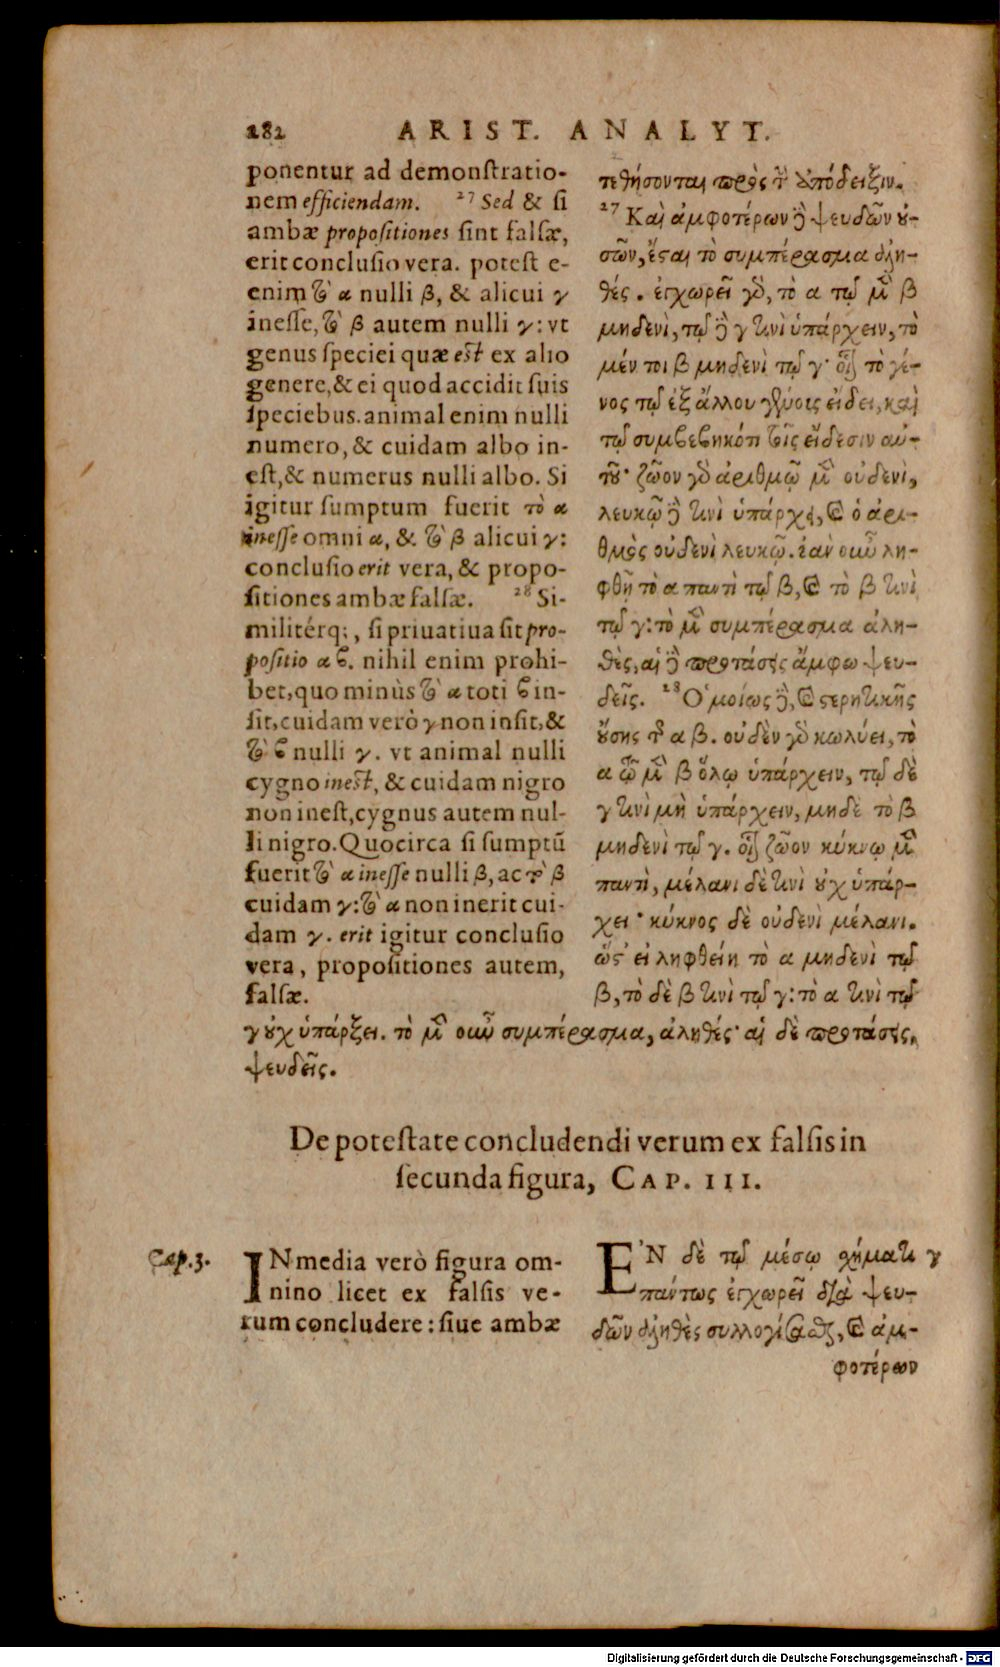 282 ARIST. ANALYT.
ponentur ad demonſtratio-
nem efficiendam. 27 Sed & ſi
ambæ propoſitiones ſint falſæ,
erit concluſio vera. poteſt e-
enim τὸ α nulli β, & alicui γ
ineſſe, τὸ β autem nulli γ: vt
genus ſpeciei quæ eſt ex alio
genere, & ei quod accidit ſuis
ſpeciebus. animal enim nulli
numero, & cuidam albo in-
eſt, & numerus nulli albo. Si
igitur ſumptum fuerit τὸ α
ineſſe omni α, & τὸ β alicui γ:
concluſio erit vera, & propo-
ſitiones ambæ falſæ. 28 Si-
militérq;, ſi priuatiua ſit pro-
poſitio α ϐ. nihil enim prohi-
bet, quo minùs τὸ α toti ϐ in-
ſit, cuidam verò γ non inſit, &
τὸ ϐ nulli γ. vt animal nulli
cygno ineſt, & cuidam nigro
non ineſt, cygnus autem nul-
li nigro. Quocirca ſi ſumptũ
fuerit τὸ α ineſſe nulli β, ac τὸ β
cuidam γ: τὸ α non inerit cui-
dam γ. erit igitur concluſio
vera, propoſitiones autem,
falſæ.
τεθήσονται πρὸς τὴν ἀπόδειξιν.
27 Καὶ ἀμφοτέρων δὲ ψευδῶν οὐ-
σῶν, ἔσται τὸ συμπέρασμα ἀλη-
θές. ἐγχωρεῖ γὰρ, τὸ α τῷ μὲν β
μηδενὶ, τῷ δὲ γ τινὶ ὑπάρχειν, τὸ
μέν τοι β μηδενὶ τῷ γ· οἷον τὸ γέ-
νος τῷ ἐξ ἄλλου γένους εἴδει, καὶ
τῷ συμϐεϐηκότι τοῖς εἴδεσιν αὐ-
τοῦ· ζῶον γὰρ ἀριθμῷ μὲν οὐδενὶ,
λευκῷ δὲ τινὶ ὑπάρχει, καὶ ὁ ἀρι-
θμὸς οὐδενὶ λευκῷ. ἐὰν οὖν λη-
φθῇ τὸ α παντὶ τῷ β, καὶ τὸ β τινὶ
τῷ γ: τὸ μὲν συμπέρασμα ἀλη-
θὲς, αἱ δὲ προτάσεις ἄμφω ψευ-
δεῖς. 28 Ὁμοίως δὲ, καὶ στερητικῆς
οὔσης τῆς α β. οὐδὲν γὰρ κωλύει, τὸ
α τῷ μὲν β ὅλῳ ὑπάρχειν, τῷ δὲ
γ τινὶ μὴ ὑπάρχειν, μηδὲ τὸ β
μηδενὶ τῷ γ. οἷον ζῶον κύκνῳ μὲν
παντὶ, μέλανι δὲ τινὶ οὐχ ὑπάρ-
χει· κύκνος δὲ οὐδενὶ μέλανι.
ὥστ' εἰ ληφθείη τὸ α μηδενὶ τῷ
β, τὸ δὲ β τινὶ τῷ γ: τὸ α τινὶ τῷ
γ οὐχ ὑπάρξει. τὸ μὲν οὖν συμπέρασμα, ἀληθές· αἱ δὲ προτάσεις,
ψευδεῖς.
De poteſtate concludendi verum ex falſis in
ſecunda figura, CAP. III.
Cap. 3.
IN media verò figura om-
nino licet ex falſis ve-
rum concludere: ſiue ambæ
ἘΝ δὲ τῷ μέσῳ σχήματι γ
πάντως ἐγχωρεῖ διὰ ψευ-
δῶν ἀληθὲς συλλογίσασθαι, καὶ ἀμ-
φοτέρων
Digitalisierung gefördert durch die Deutsche Forschungsgemeinschaft - DFG